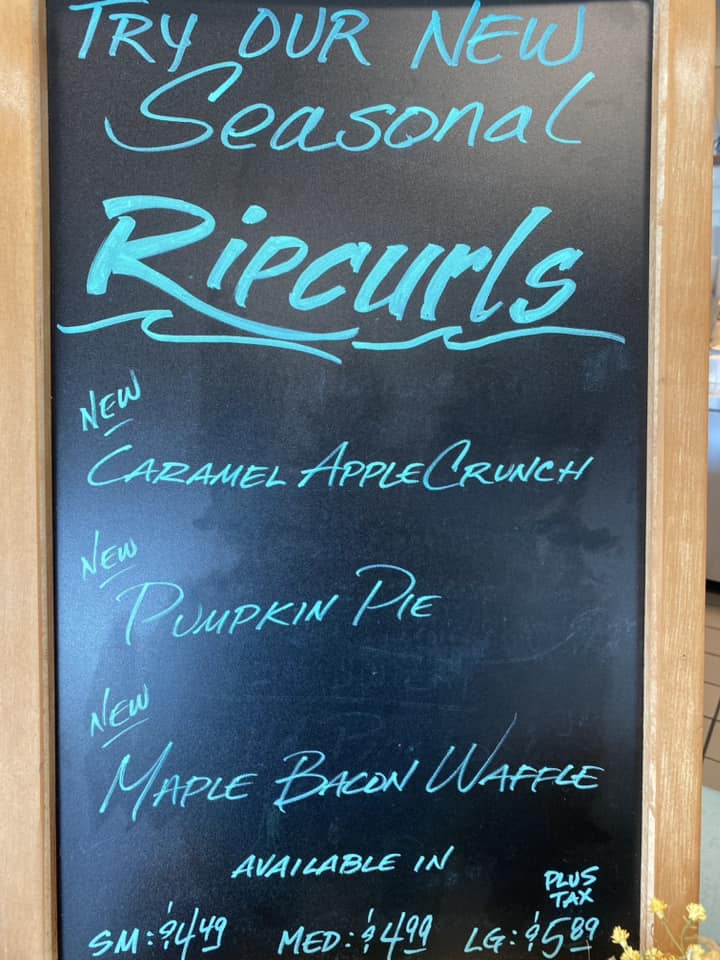 TRY OUR NEW
Seasonal
Ripcurls
NEW
CARAMEL APPLE CRUNCH
NEW
PUMPKIN PIE
NEW
MAPLE BACON WAFFLE
AVAILABLE IN
PLUS
TAX
SM: $4.49 MED: $4.99 LG: $5.89